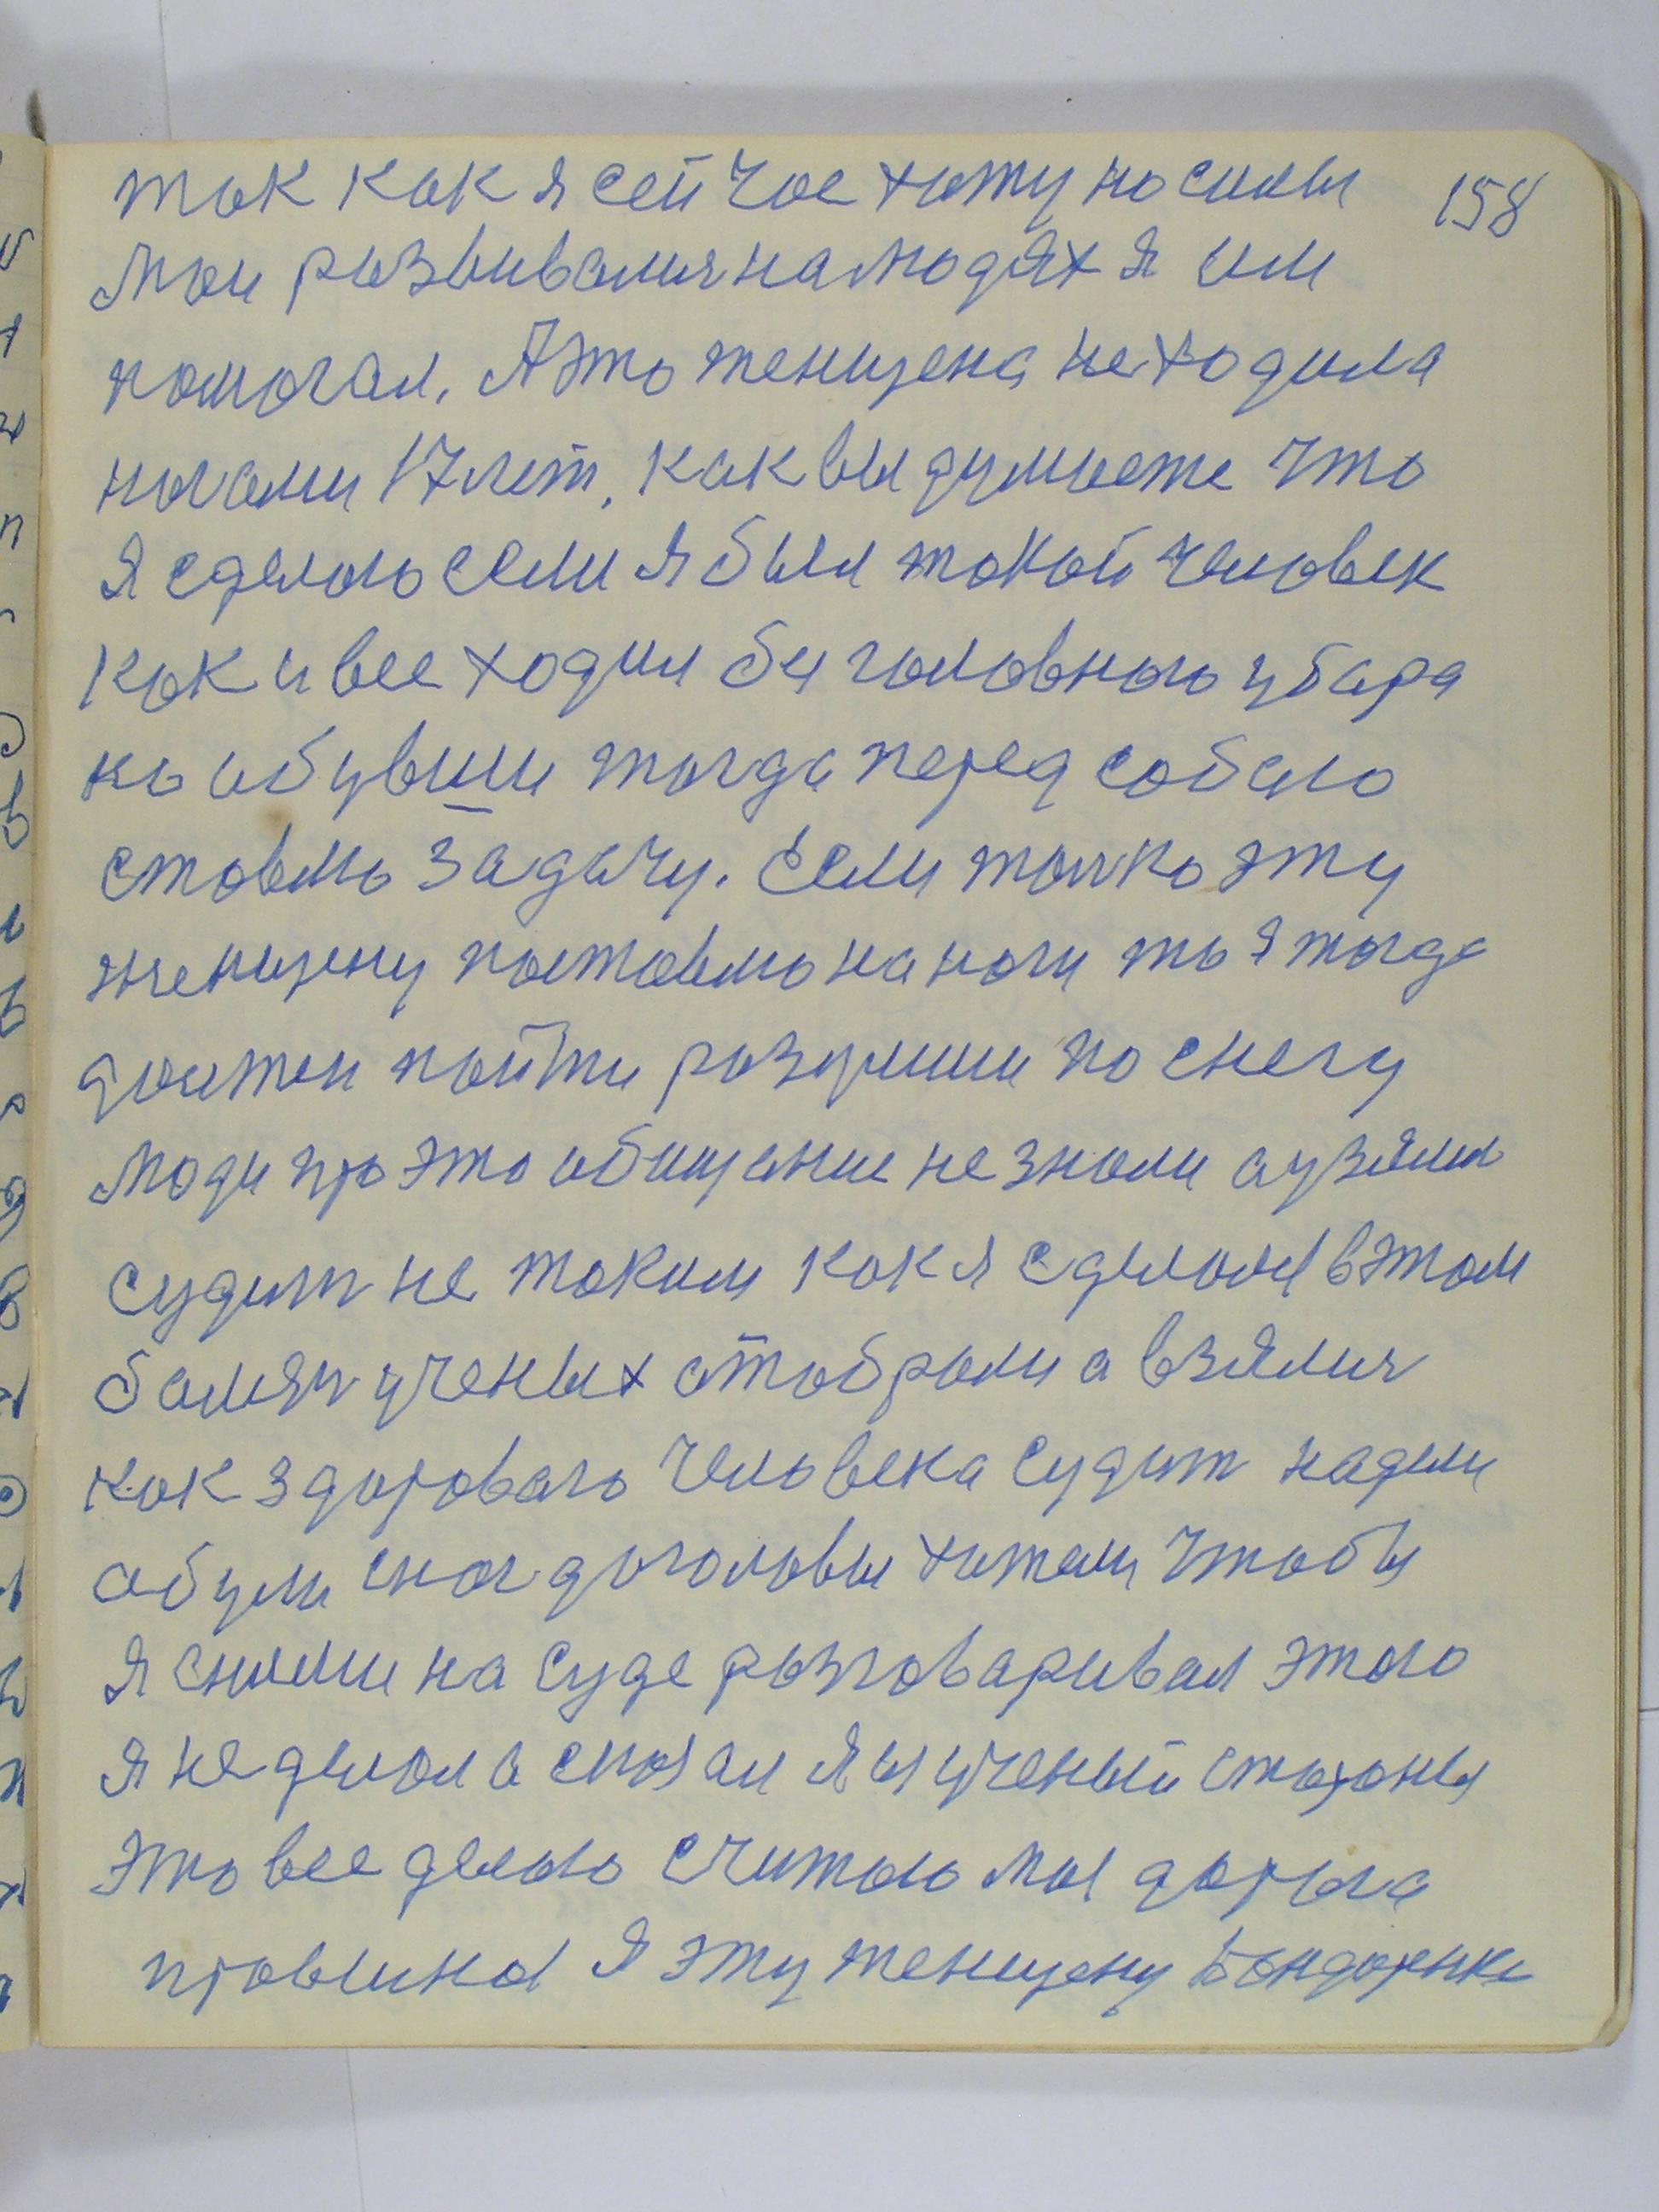 так как я сейчас хожу но силы 158
мои развивался на людях я им
помогал. А это женщена не ходила
ногами 17 лет. как вы думаете что
я сделаю если я был такой человек
как и все ходил бы головного убара
но обувши тогда перед собаю
ставлю задачу. Если толко эту
женщену поставлю на ноги то я тогда
должен пойти розувши по снегу
люди про это обищание не знали а узяли
судит не таким как я сделался в этом
балязн ученых отобрали а взялися
как здорового человека судит надели
обули сног доголовы хотели чтобы
я сними на суде разговаривал этого
я не делал а сказал я из ученый стораны
это все делаю считаю моя дорога
правилна я эту женщену Бондаренко